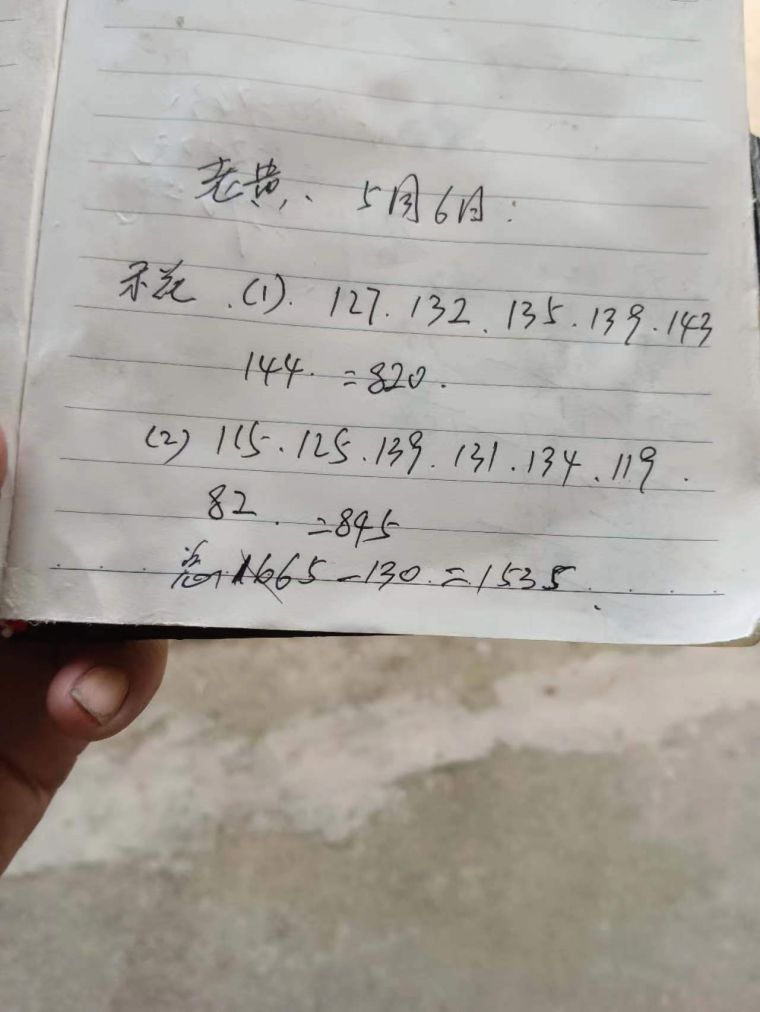 老黄、. 5月6日.
禾花.(1). 127. 132. 135. 139. 143
144. =820.
(2) 115. 125. 139. 131. 134. 119.
82. =845
1665 -130. =1535.